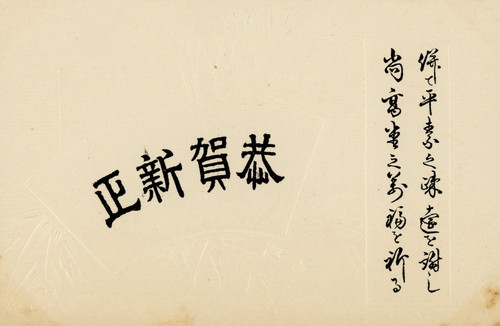 恭賀新正
併て平素之疎遠を謝し
尚高堂之萬福を祈る